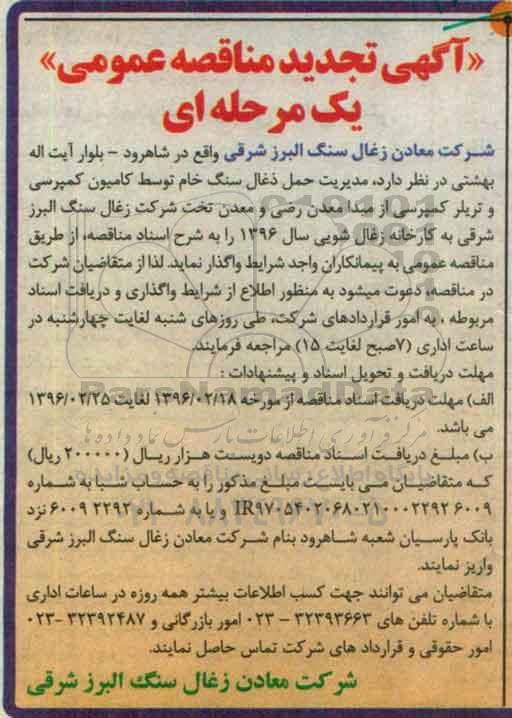 «آگهی تجدید مناقصه عمومی»
یک مرحله ای
شرکت معادن زغال سنگ البرز شرقی واقع در شاهرود - بلوار آیت اله
بهشتی در نظر دارد، مدیریت حمل ذغال سنگ خام توسط کامیون کمپرسی
و تریلر کمپرسی از مبدا معدن رضی و معدن تخت شرکت زغال سنگ البرز
شرقی به کارخانه زغال شویی سال ۱۳۹۶ را به شرح اسناد مناقصه، از طریق
مناقصه عمومی به پیمانکاران واجد شرایط واگذار نماید. لذا از متقاضیان شرکت
در مناقصه، دعوت میشود به منظور اطلاع از شرایط واگذاری و دریافت اسناد
مربوطه ، به امور قراردادهای شرکت، طی روزهای شنبه لغایت چهارشنبه در
ساعت اداری (۷صبح لغایت ۱۵) مراجعه فرمایند.
مهلت دریافت و تحویل اسناد و پیشنهادات :
الف) مهلت دریافت اسناد مناقصه از مورخه ۱۳۹۶/۰۲/۱۸ لغایت ۱۳۹۶/۰۲/۲۵
می باشد.
ب) مبلغ دریافت اسناد مناقصه دویست هزار ریال (۲۰۰۰۰۰ ریال)
که متقاضیان می بایست مبلغ مذکور را به حساب شبا به شماره
IR۹۷۰۵۴۰۲۰۶۸۰۲۱۰۰۰۲۲۹۲۶۰۰۹ و یا به شماره ۲۲۹۲ ۶۰۰۹ نزد
بانک پارسیان شعبه شاهرود بنام شرکت معادن زغال سنگ البرز شرقی
واریز نمایند.
متقاضیان می توانند جهت کسب اطلاعات بیشتر همه روزه در ساعات اداری
با شماره تلفن های ۳۲۳۹۳۶۶۳ - ۰۲۳ امور بازرگانی و ۳۲۳۹۲۴۸۷ -۰۲۳
امور حقوقی و قرارداد های شرکت تماس حاصل نمایند.
شرکت معادن زغال سنگ البرز شرقی
ParsNamadData